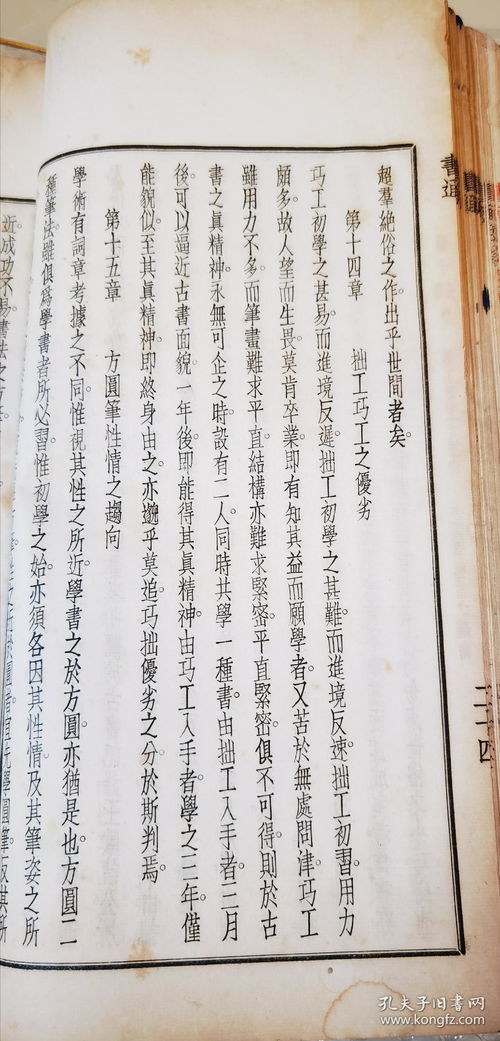 書通
二十四
超羣絶俗之作出乎世間者矣。
第十四章 拙工巧工之優劣
巧工初學之甚易而進境反遲。拙工初學之甚難而進境反速。拙工初習。用力
頗多。故人望而生畏。莫肯卒業。即有知其益而願學者。又苦於無處問津。巧工
雖用力不多。而筆畫難求平直。結構亦難求緊密。平直緊密。俱不可得。則於古
書之眞精神。永無可企之時。設有二人。同時共學一種書。由拙工入手者。三月
後可以逼近古書面貌。一年後即能得其眞精神。由巧工入手者。學之二年。僅
能貌似。至其眞精神。即終身由之。亦邈乎莫追。巧拙優劣之分。於斯判焉。
第十五章 方圓筆性情之趨向
學術有詞章考據之不同。惟視其性之所近。學書之於方圓。亦猶是也。方圓二
種筆法。雖俱爲學書者所必習。惟初學之始。亦須各因其性情及其筆姿之所
近。成功不易。書法之
孔夫子旧书网
www.kongfz.com